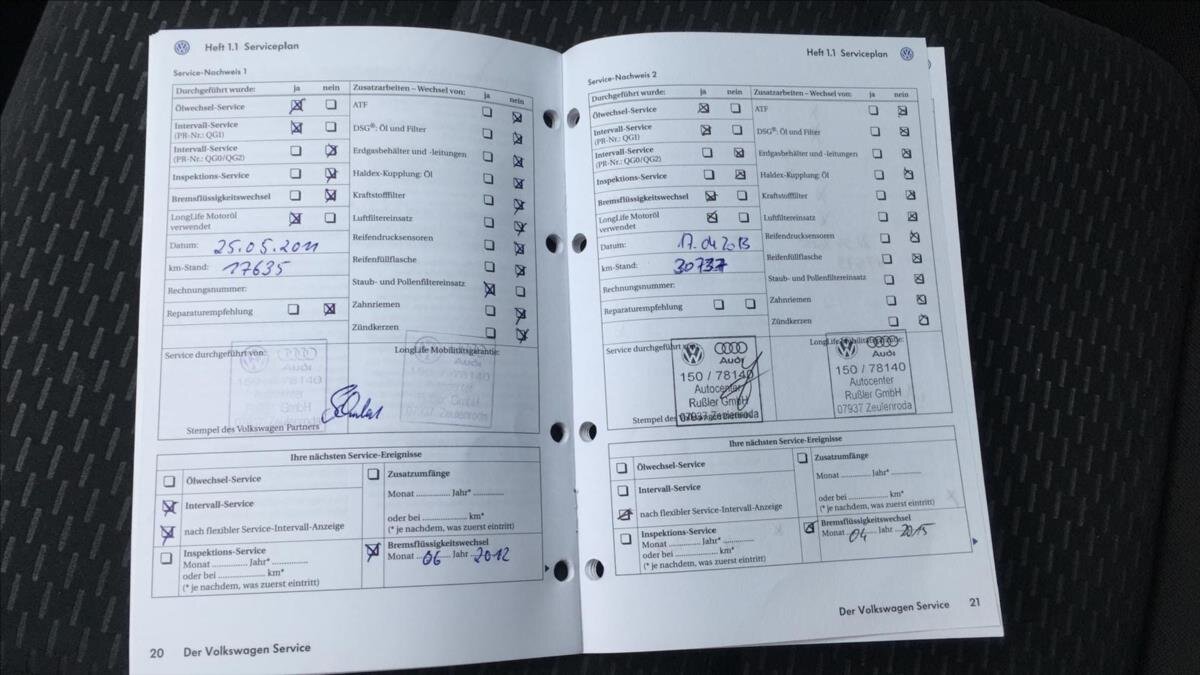 Heft 1.1 Serviceplan
Service-Nachweis 1
Durchgeführt wurde: ja nein
Ölwechsel-Service
Intervall-Service
(PR-Nr.: QG1)
Intervall-Service
(PR-Nr.: QG0/QG2)
Inspektions-Service
Bremsflüssigkeitswechsel
LongLife Motoröl
verwendet
Datum: 25.05.2011
km-Stand: 17635
Rechnungsnummer:
Reparaturempfehlung
Zusatzarbeiten – Wechsel von: ja nein
ATF
DSG®: Öl und Filter
Erdgasbehälter und -leitungen
Haldex-Kupplung: Öl
Kraftstofffilter
Luftfiltereinsatz
Reifendrucksensoren
Reifenfüllflasche
Staub- und Pollenfiltereinsatz
Zahnriemen
Zündkerzen
Service durchgeführt von:
Audi
150 / 78140
GmbH
Stempel des Volkswagen Partners
LongLife Mobilitätsgarantie:
Audi
150 / 78140
07937 Zeulenroda
Ihre nächsten Service-Ereignisse
Ölwechsel-Service
Intervall-Service
nach flexibler Service-Intervall-Anzeige
Inspektions-Service
Monat .............. Jahr* ..............
oder bei .............. km*
(* je nachdem, was zuerst eintritt)
Zusatzumfänge
Monat .............. Jahr* ..............
oder bei .............. km*
(* je nachdem, was zuerst eintritt)
Bremsflüssigkeitswechsel
Monat 06 Jahr 2012
20 Der Volkswagen Service
Heft 1.1 Serviceplan
Service-Nachweis 2
Durchgeführt wurde: ja nein
Ölwechsel-Service
Intervall-Service
(PR-Nr.: QG1)
Intervall-Service
(PR-Nr.: QG0/QG2)
Inspektions-Service
Bremsflüssigkeitswechsel
LongLife Motoröl
verwendet
Datum: 17.04.2013
km-Stand: 30737
Rechnungsnummer:
Reparaturempfehlung
Zusatzarbeiten – Wechsel von: ja nein
ATF
DSG®: Öl und Filter
Erdgasbehälter und -leitungen
Haldex-Kupplung: Öl
Kraftstofffilter
Luftfiltereinsatz
Reifendrucksensoren
Reifenfüllflasche
Staub- und Pollenfiltereinsatz
Zahnriemen
Zündkerzen
Service durchgeführt von:
Audi
150 / 78140
Autocenter
Rußler GmbH
07937 Zeulenroda
Stempel des
LongLife Mobilitätsgarantie:
Audi
150 / 78140
Autocenter
Rußler GmbH
07937 Zeulenroda
Ihre nächsten Service-Ereignisse
Ölwechsel-Service
Intervall-Service
nach flexibler Service-Intervall-Anzeige
Inspektions-Service
Monat .............. Jahr* ..............
oder bei .............. km*
(* je nachdem, was zuerst eintritt)
Zusatzumfänge
Monat .............. Jahr* ..............
oder bei .............. km*
(* je nachdem, was zuerst eintritt)
Bremsflüssigkeitswechsel
Monat 04 Jahr 2015
Der Volkswagen Service 21